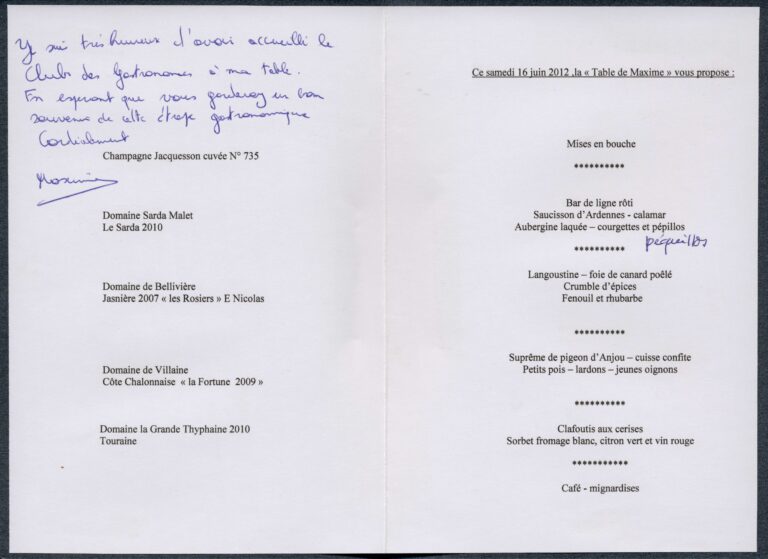 Je suis très heureux d'avoir accueilli le
Club des Gastronomes à ma table.
En esperant que vous garderez un bon
souvenir de cette étape gastronomique
Cordialement
Champagne Jacquesson cuvée N° 735
Maxime
Domaine Sarda Malet
Le Sarda 2010
Domaine de Bellivière
Jasnière 2007 « les Rosiers » E Nicolas
Domaine de Villaine
Côte Chalonnaise « la Fortune 2009 »
Domaine la Grande Thyphaine 2010
Touraine
Ce samedi 16 juin 2012 ,la « Table de Maxime » vous propose :
Mises en bouche
**********
Bar de ligne rôti
Saucisson d'Ardennes - calamar
Aubergine laquée – courgettes et pépillos
péquillos
**********
Langoustine – foie de canard poêlé
Crumble d'épices
Fenouil et rhubarbe
**********
Suprême de pigeon d'Anjou – cuisse confite
Petits pois – lardons – jeunes oignons
**********
Clafoutis aux cerises
Sorbet fromage blanc, citron vert et vin rouge
***********
Café - mignardises